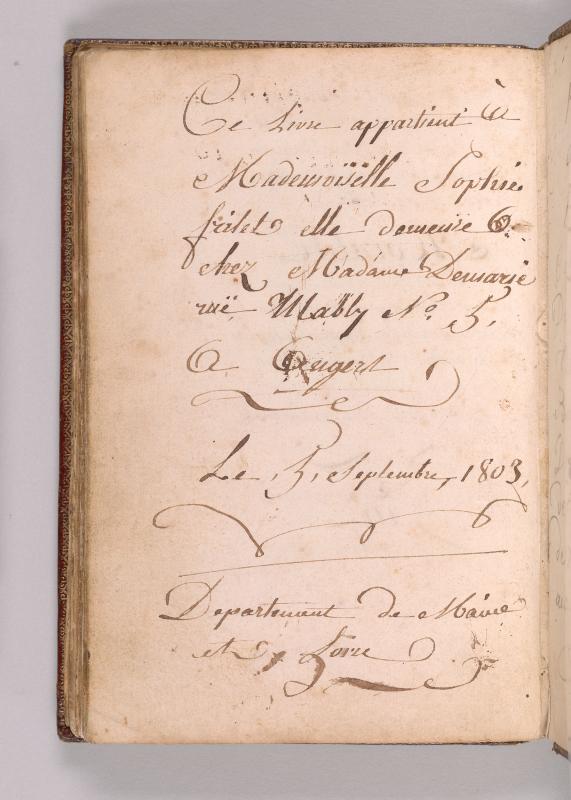 Ce Livre appartient à
Mademoiselle Sophie
filet elle demeure
chez Madame Demarie
ruë Mably No. 5.
A Engert
Le, 5, Septembre, 1803,
Departement de Maine
et Loire